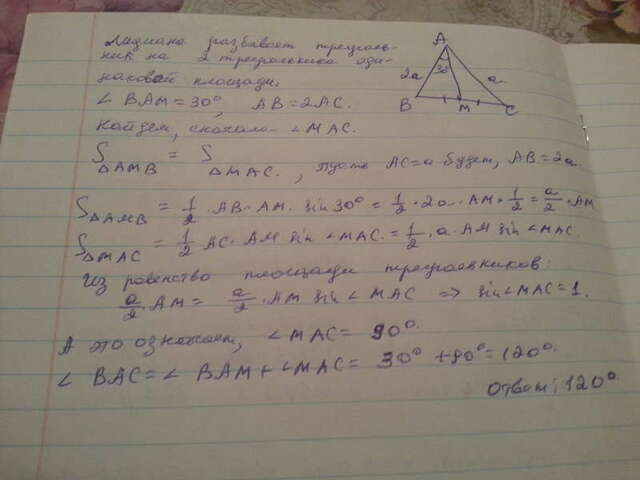 Медиана разбивает треуголь-
ник на 2 треугольника оди-
наковой площади.
∠ BAM = 30°, AB = 2AC.
Найдем, сначала ∠ MAC.
S△AMB = S△MAC. , Пусть AC = a будет, AB = 2a.
S△AMB = 1/2 · AB · AM. sin 30° = 1/2 · 2a · AM · 1/2 = a/2 · AM
S△MAC = 1/2 AC · AM sin ∠ MAC. = 1/2 · a · AM sin ∠ MAC.
Из равенства площади треугольников:
a/2 · AM = a/2 · AM sin ∠ MAC ⇒ sin ∠ MAC = 1.
А это означает, ∠ MAC = 90°.
∠ BAC = ∠ BAM + ∠ MAC = 30° + 90° = 120°.
Ответ: 120°.
A
30°
2a
a
B
M
C